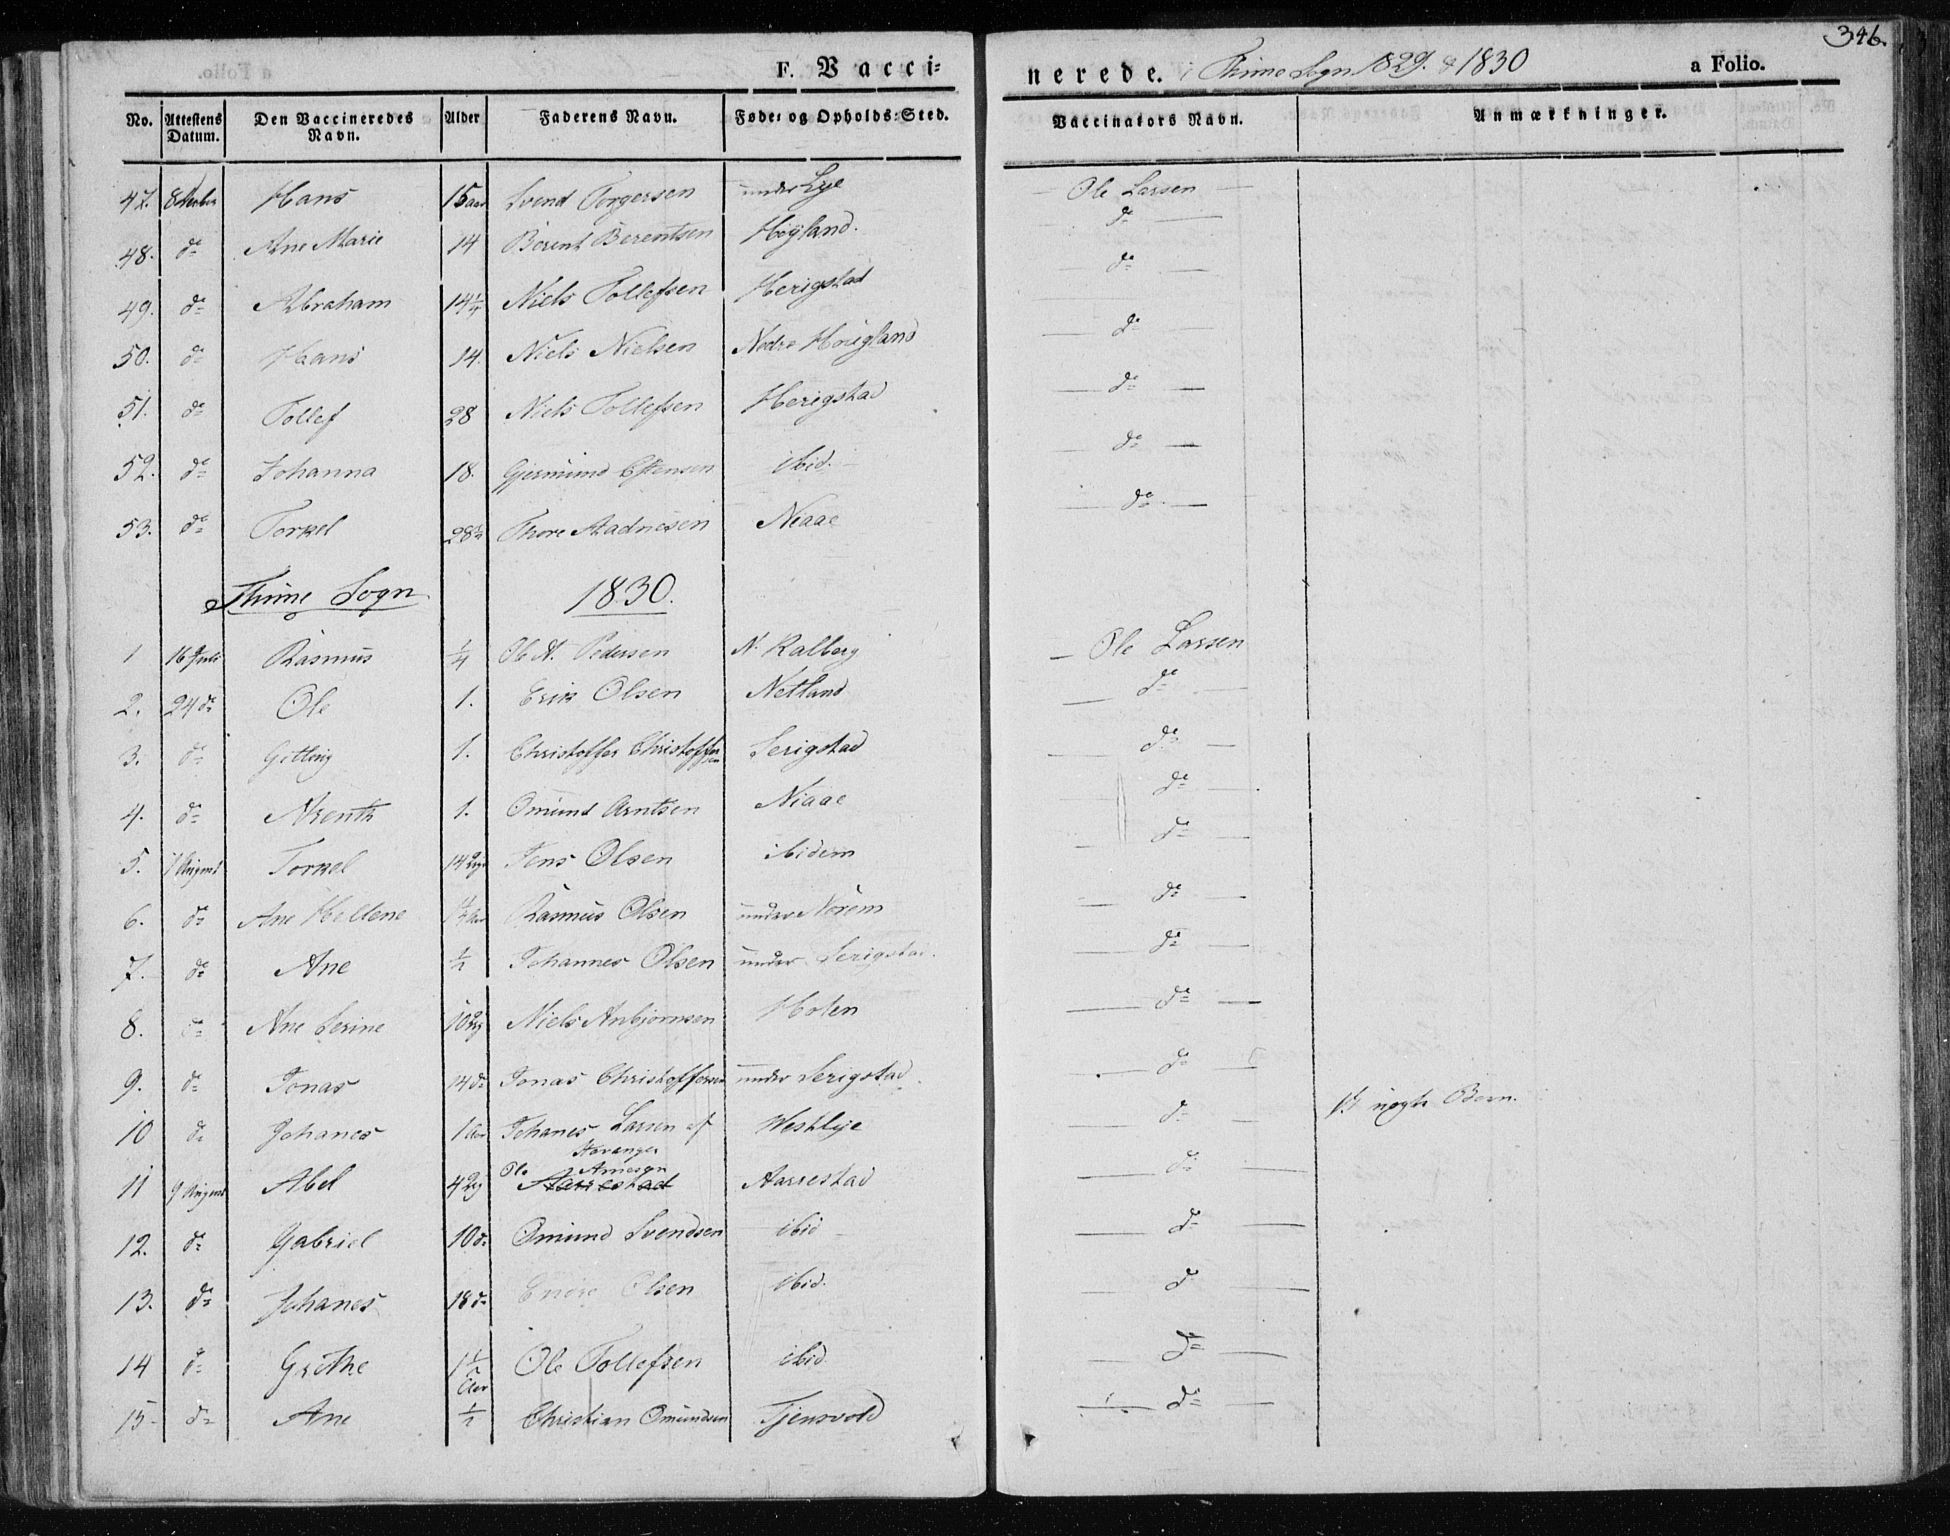 346.
F. Vacci=
nerede. i Thime Sogn 1829. & 1830 a Folio.
No. Attestens Datum. Den Vaccineredes Navn. Alder Faderens Navn. Føde= og Opholds=Sted. Vaccinators Navn. Anmærkninger.
47. Hans 15 aar Svend Torgersen under Lye Ole Larsen
48. do Ane Marie 14 Berent Berentsen Høyland. do
49. do Abraham 14 Niels Tollefsen Herigstad do
50. do Hans 14. Niels Nielsen Nedre Hougland do
51. do Tollef 28 Niels Tollefsen Herigstad do
52. do Johanna 18. Gjermund Estensen ibid. do
53. do Torkel 28½ Thore Aadnesen Niaae do
Thime Sogn 1830.
1 16 Juli Rasmus ¼ Ole A. Pedersen N. Kalberg Ole Larsen
2. 24 do Ole 1. Erik Olsen Netland do
3. do Gitting 1. Christoffer Christoffersen Serigstad do
4. do Arenth 1. Omund Arntsen Niaae do
5. 1 August Torkel 14 Ugr Jens Olsen ibidem do
6. do Ane Hellene Rasmus Olsen under Norem do
7. do Ane ½ Johannes Olsen under Serigstad. do
8. do Ane Serine 10 Ug Niels Anbjørnsen Holen do
9. do Jonas 14 do Jonas Christoffersen under Serigstad. do
10 do Johanes 1 Aar Johanes Larsen af Stavanger Westlye do Et uægte Barn.
11 9 August Abel 4 Ug Ole Arnesen Aarrestad Aarrestad do
12. do Gabriel 10 do Omund Svendsen ibid do
13. do Johanes 18 do Endre Olsen ibid. do
14 do Grethe 1½ Aar Ole Tollefsen ibid. do
15 do Ane ½ Christian Omundsen Tjensvold do